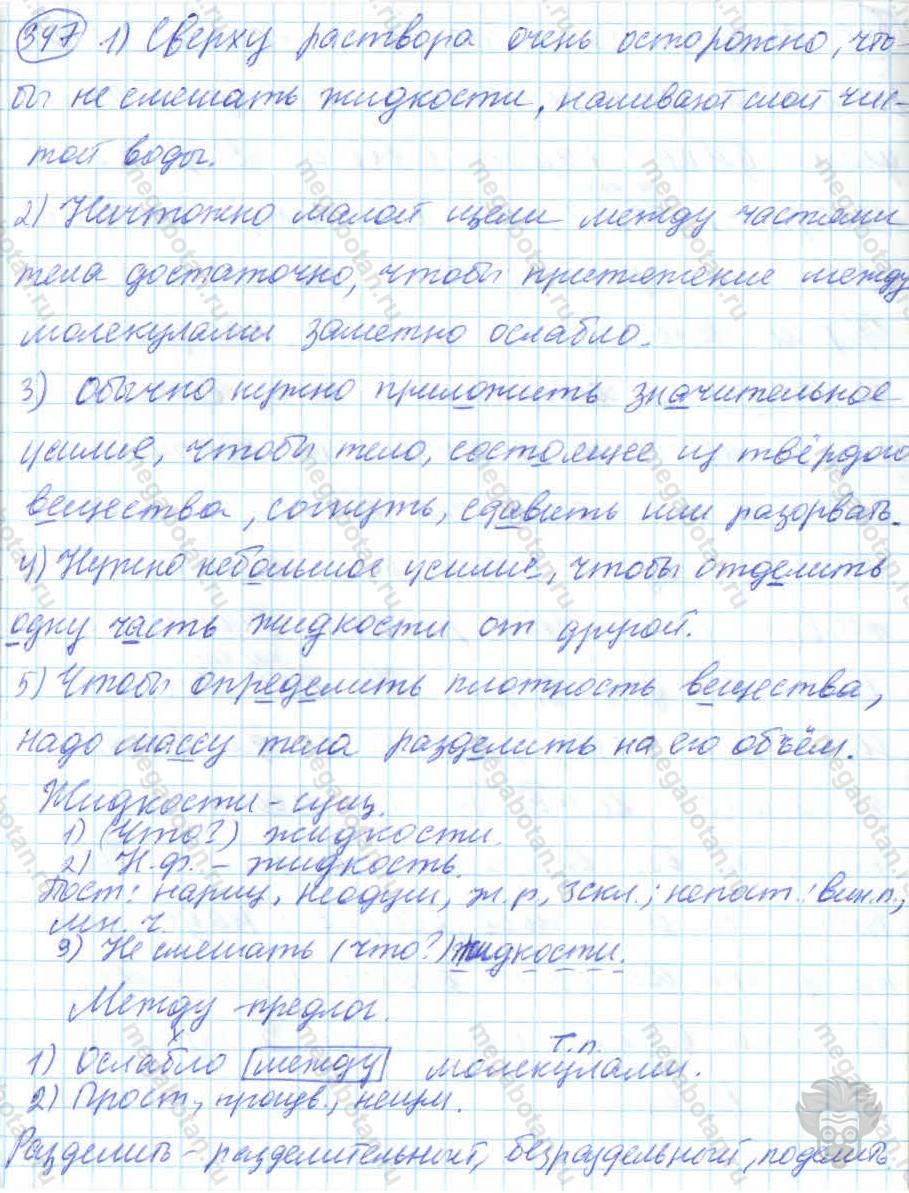 347 1) Сверху раствора очень осторожно, что-
бы не смешать жидкости, наливают слой чис-
той воды.
2) Ничтожно малой щели между частями
тела достаточно, чтобы притяжение между
молекулами заметно ослабло.
3) Обычно нужно приложить значительное
усилие, чтобы тело, состоящее из твёрдого
вещества, согнуть, сдавить или разорвать.
4) Нужно небольшое усилие, чтобы отделить
одну часть жидкости от другой.
5) Чтобы определить плотность вещества,
надо массу тела разделить на его объём.
Жидкости - сущ.
1) (Что?) жидкости.
2) Н.ф. - жидкость.
Пост: нариц., неодуш., ж.р., 3 скл.; непост.: вин.п.,
мн. ч.
3) Не смешать (что?) жидкости.
Между - предлог.
х Т.п.
1) Ослабло между молекулами.
2) Прост., произв., неизм.
Разделить - разделительный, безраздельный, поделить.
megabotan.ru